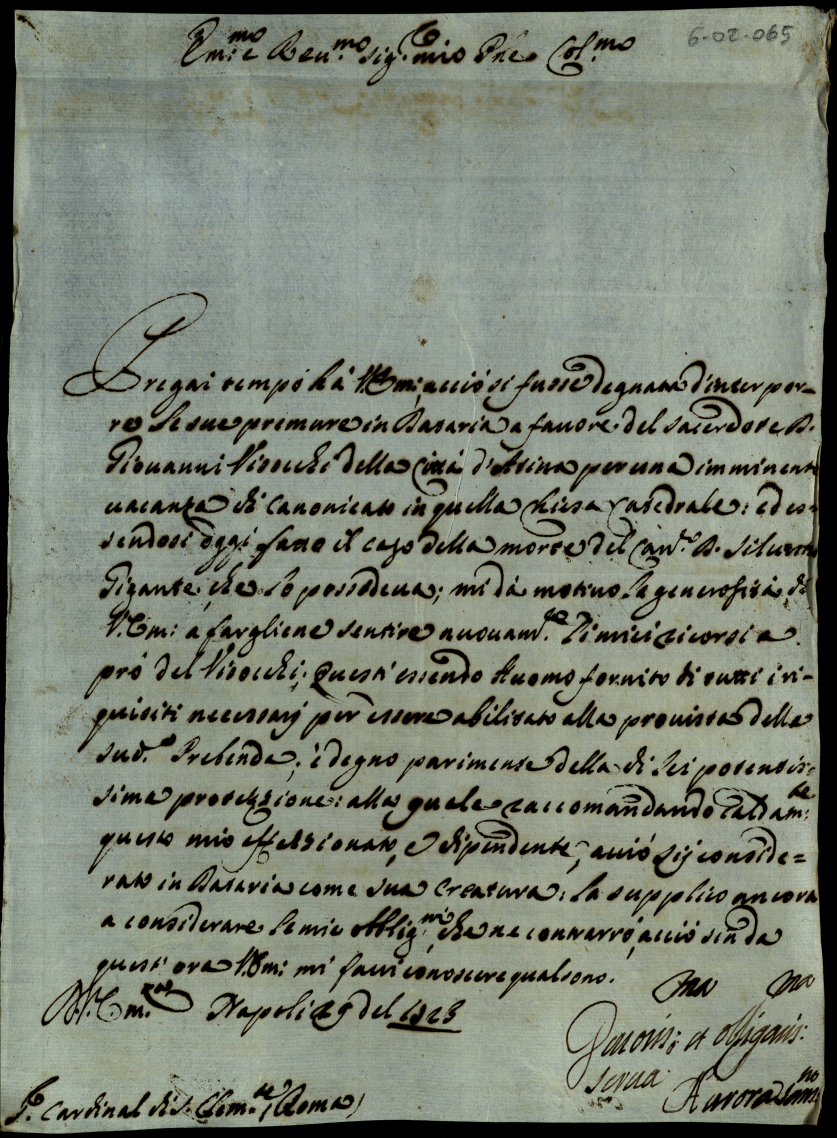 6-02-065
Em:mo e Reu:mo Sig:r mio P̃ne Col:mo
Pregai tempo hà V.Em: acciò si fusse degnata d'interpor=
re le sue premure in Dataria a fauore del sacerdote D.
Giouanni Visocchi della Città d'Atina per una imminente
uacanza di Canonicato in quella Chiesa Catedrale: ed es=
sendosi oggi fatto il caso della morte del Can:co D. Siluestro
Gigante, che lo possedeua; mi dà motiuo la generosità di
V.Em: a fargliene sentire nuouam:te li miei ricorsi a
prò del Visocchi; Questi essendo Huomo fornito di tutti i ri=
quisiti necessarj per essere abilitato alla prouista della
sud:a Prebenda, è degno parimente della di Lei potentis=
sima protezzione: alla quale raccomandando caldam:te
questo mio affezzionato, e dipendente, acciò sij conside=
rato in Dataria come sua Creatura; la supplico ancora
a considerare le mie obblig:ni, che ne contrarrò, acciò sin da
quest'ora V.Em: mi facci conoscere qual sono.
D. V. Em:za Napoli 29 del 1723
Deuotis:ma et obligatis:ma
serua
Aurora
S.r Cardinal di S. Clem:te (Roma)